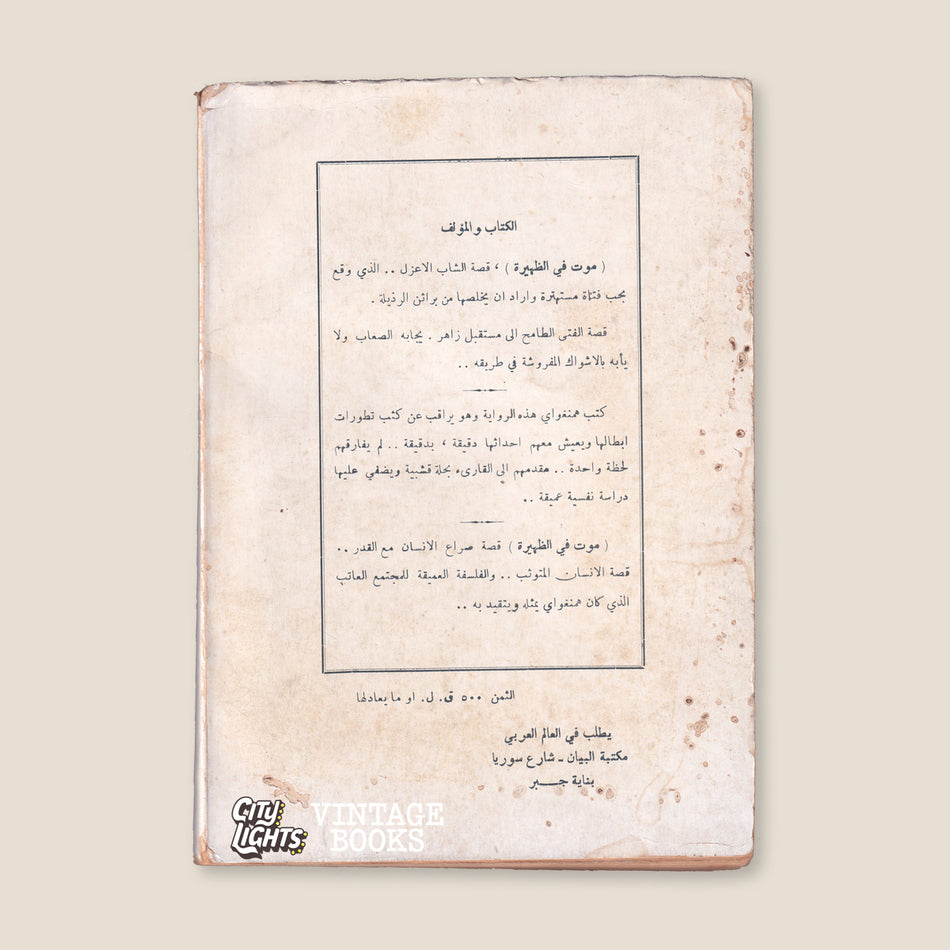 الكتاب والمؤلف
( موت في الظهيرة ) ، قصة الشاب الاعزل .. الذي وقع
بحب فتاة مستهترة واراد ان يخلصها من براثن الرذيلة .
قصة الفتى الطامح الى مستقبل زاهر . يجابه الصعاب ولا
يأبه بالاشواك المفروشة في طريقه ..
كتب همنغواي هذه الرواية وهو يراقب عن كثب تطورات
ابطالها ويعيش معهم احداثها دقيقة ، بدقيقة .. لم يفارقهم
لحظة واحدة .. مقدمهم الى القارىء بحلة قشيبة ويضفي عليها
دراسة نفسية عميقة ..
( موت في الظهيرة ) قصة صراع الانسان مع القدر ..
قصة الانسان المتوثب .. والفلسفة العميقة للمجتمع العاتب
الذي كان همنغواي يمثله ويتقيد به ..
الثمن ٥٠٠ ق. ل. او ما يعادلها
يطلب في العالم العربي
مكتبة البيان ـ شارع سوريا
بناية جـــبر
CITY LIGHTS
VINTAGE
BOOKS